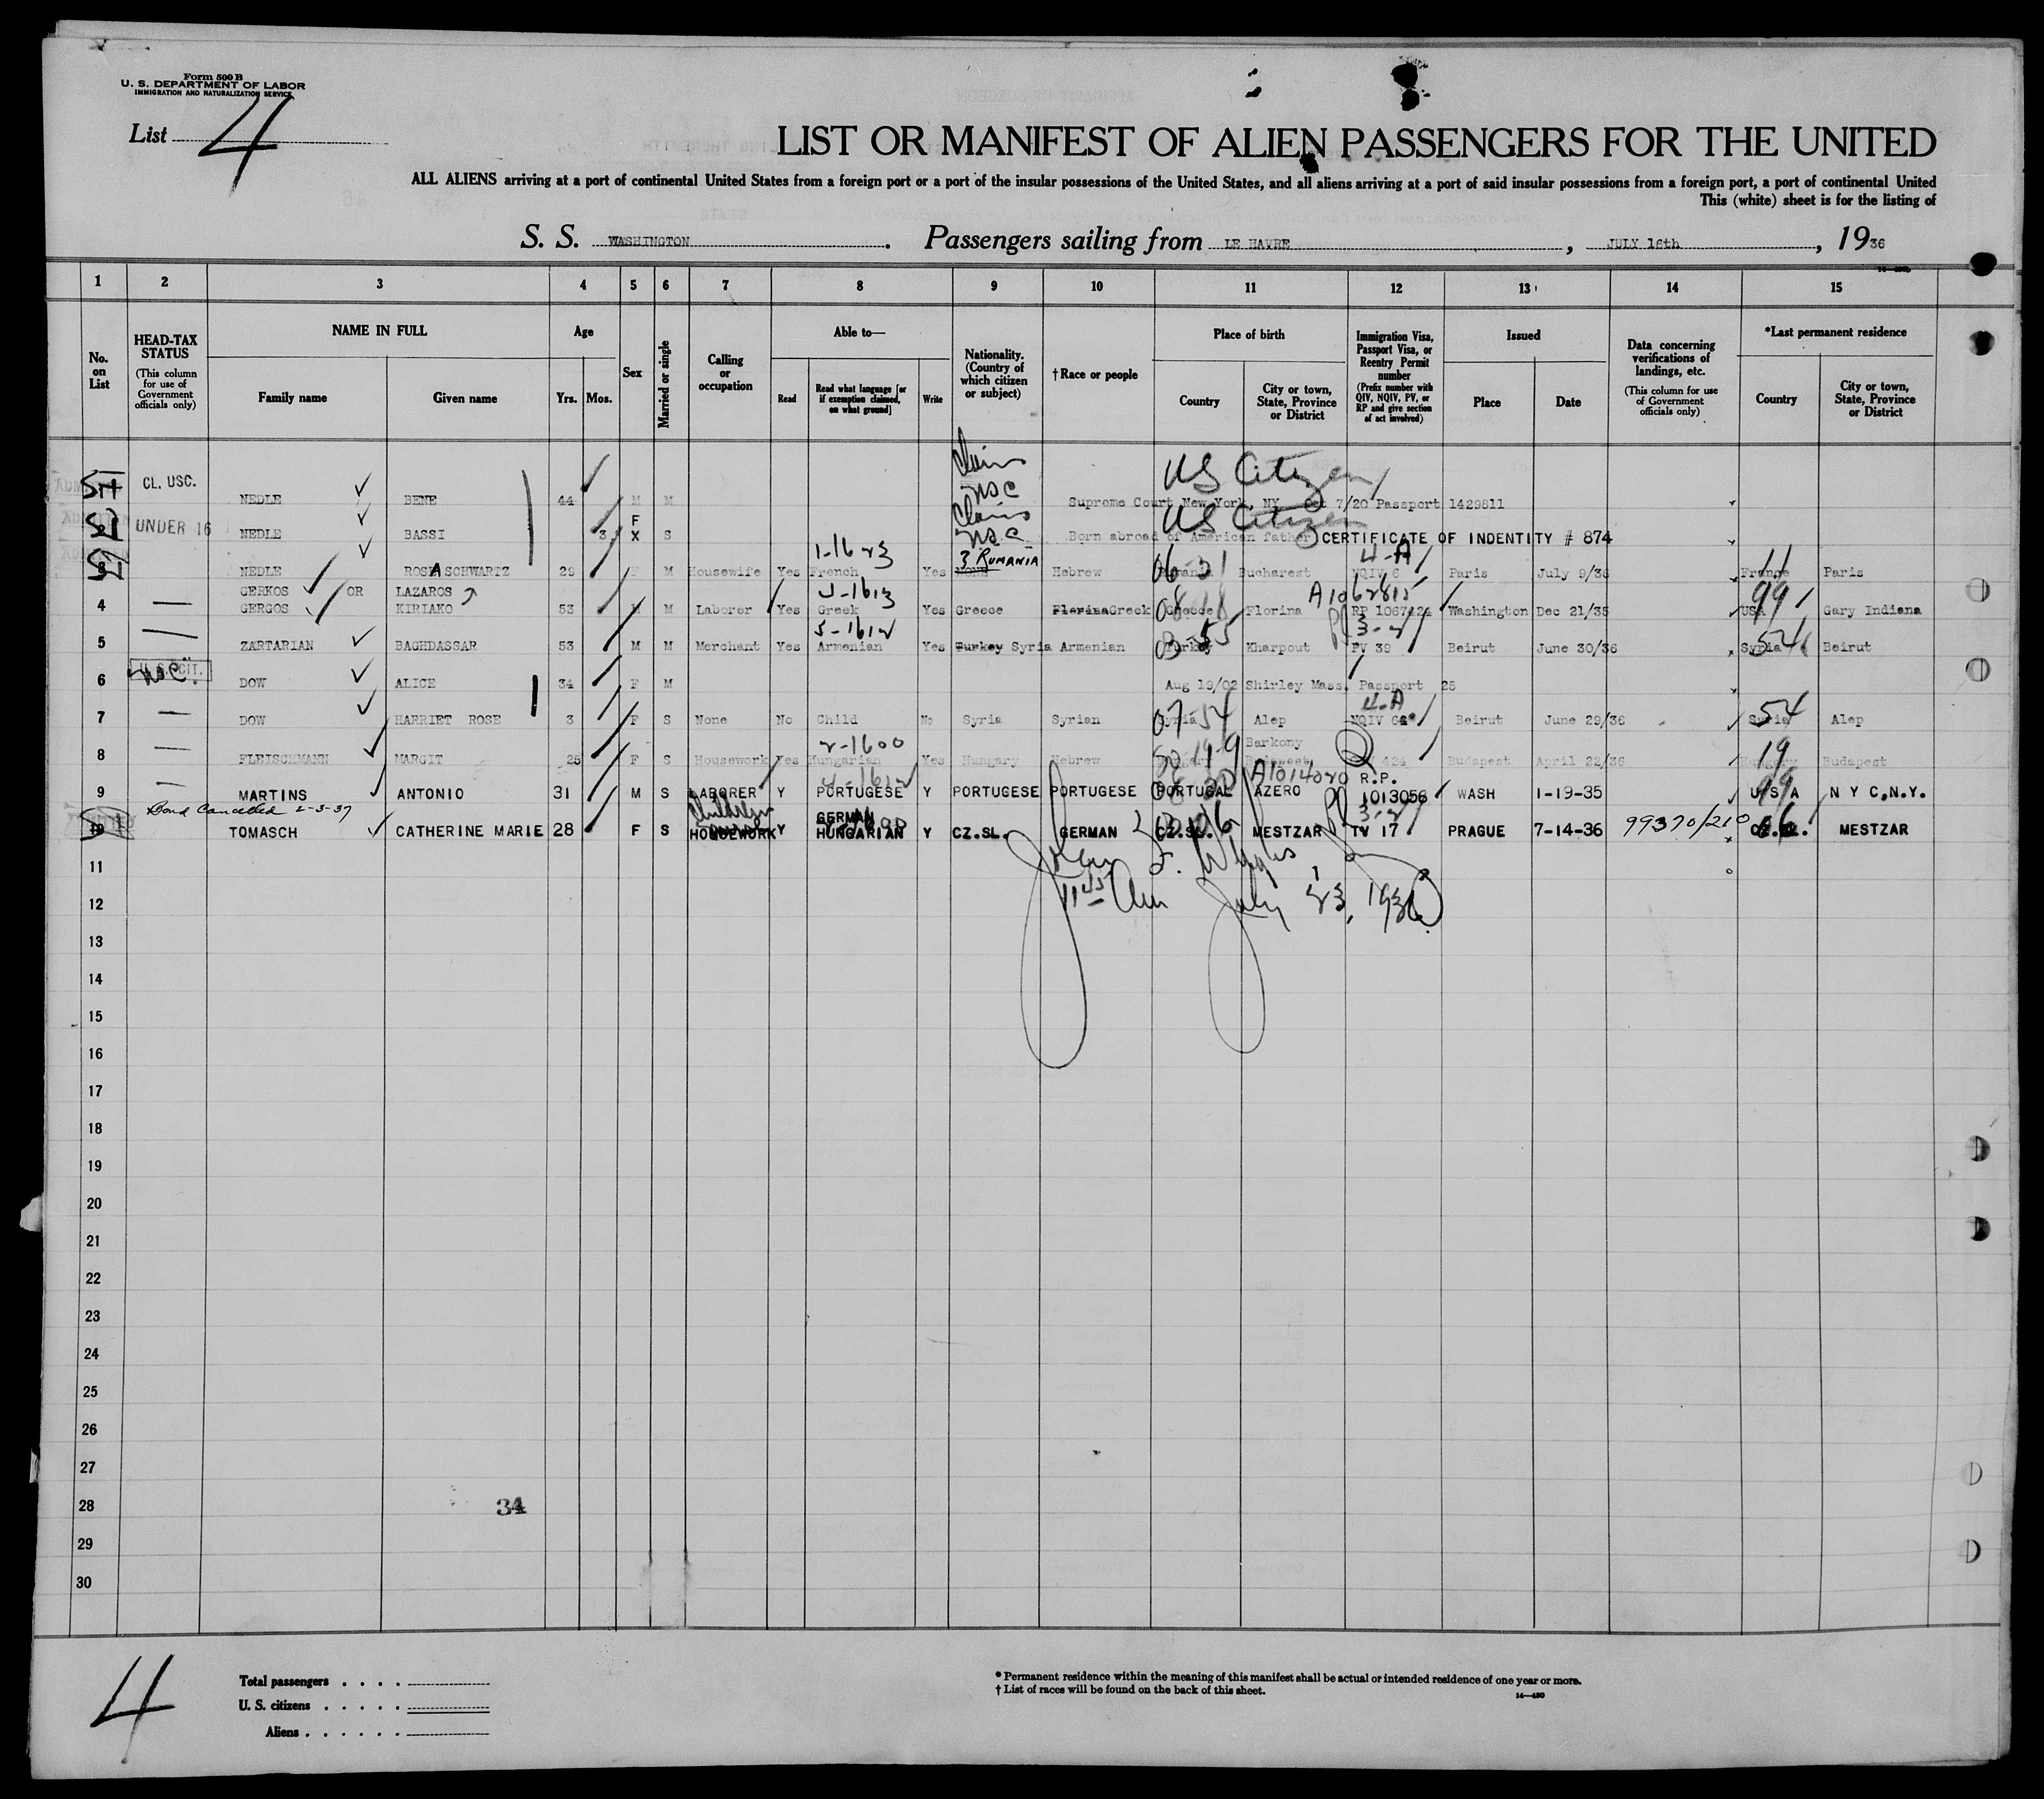 Form 500 B
U. S. DEPARTMENT OF LABOR
IMMIGRATION AND NATURALIZATION SERVICE
List 4
LIST OR MANIFEST OF ALIEN PASSENGERS FOR THE UNITED
ALL ALIENS arriving at a port of continental United States from a foreign port or a port of the insular possessions of the United States, and all aliens arriving at a port of said insular possessions from a foreign port, a port of continental United
This (white) sheet is for the listing of
S. S. WASHINGTON. Passengers sailing from LE HAVRE, JULY 16th, 1936
1 2 3 4 5 6 7 8 9 10 11 12 13 14 15
No. on List
HEAD-TAX STATUS (This column for use of Government officials only)
NAME IN FULL Family name Given name
Age Yrs. Mos.
Sex
Married or single
Calling or occupation
Able to— Read Read what language [or if exemption claimed, on what ground] Write
Nationality. (Country of which citizen or subject)
† Race or people
Place of birth Country City or town, State, Province or District
Immigration Visa, Passport Visa, or Reentry Permit number (Prefix number with QIV, NQIV, PV, or RP and give section of act involved)
Issued Place Date
Data concerning verifications of landings, etc. (This column for use of Government officials only)
*Last permanent residence Country City or town, State, Province or District
Claims US Citizen
CL. USC. NEDLE BENE 44 M M USC Supreme Court New York, NY Oct 7/20 Passport 1429811
Claims US Citizen
UNDER 16 NEDLE BASSI 3 F X S USC Born abroad of American father CERTIFICATE OF INDENTITY # 874
1-1623 4-A
NEDLE ROSA SCHWARTZ 29 F M Housewife Yes French Yes RUMANIA Hebrew Bucharest NQIV 6 Paris July 9/36 France Paris
GERKOS OR LAZAROS A1062815
4 GERGOS KIRIAKO 53 M M Laborer Yes Greek Yes Greece Florina Greek Greece Florina RP 1067124 Washington Dec 21/35 USA 99 Gary Indiana
5-1612
5 ZARTARIAN BAGHDASSAR 53 M M Merchant Yes Armenian Yes Turkey Syria Armenian Turkey Kharpout PV 39 Beirut June 30/36 Syria 54 Beirut
U.S. CIT. USC.
6 DOW ALICE 34 F M Aug 19/02 Shirley Mass. Passport 25
4-A
7 DOW HARRIET ROSE 3 F S None No Child No Syria Syrian Syria Alep NQIV Beirut June 29/36 Syria 54 Alep
2-1600 Barkony
8 FLEISCHMANN MARGIT 25 F S Housework Yes Hungarian Yes Hungary Hebrew Hungary Budapest Q 424 Budapest April 22/36 Hungary 19 Budapest
4-1612 A1014020 R.P.
9 MARTINS ANTONIO 31 M S LABORER Y PORTUGESE Y PORTUGESE PORTUGESE PORTUGAL AZERO 1013056 WASH 1-19-35 U S A 99 N Y C,N.Y.
Bond Cancelled 2-3-37
GERMAN
10 TOMASCH CATHERINE MARIE 28 F S HOUSEWORK Y HUNGARIAN Y CZ.SL. GERMAN CZ.SL. MESTZAR TV 17 PRAGUE 7-14-36 99370/210 MESTZAR
11
12
July 23, 1936
13
14
15
16
17
18
19
20
21
22
23
24
25
26
27
28 34
29
30
4
Total passengers . . . .
U. S. citizens . . . . .
Aliens . . . . . .
* Permanent residence within the meaning of this manifest shall be actual or intended residence of one year or more.
† List of races will be found on the back of this sheet.
14—430